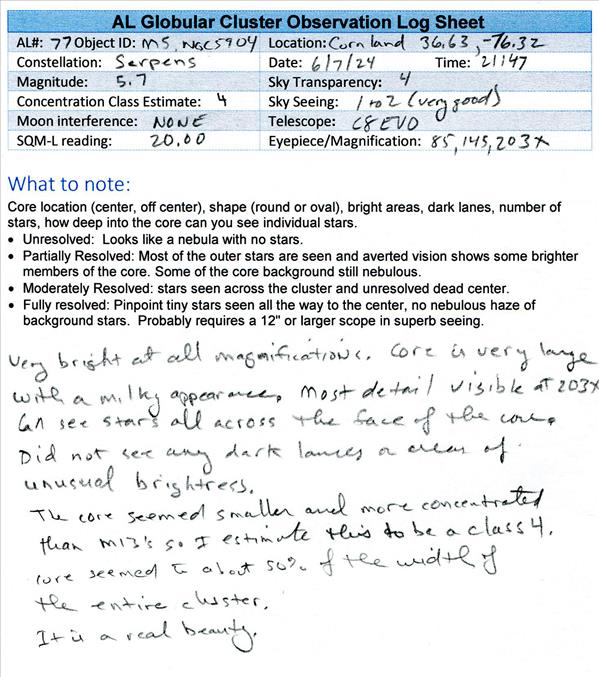 AL Globular Cluster Observation Log Sheet
AL#: 77 Object ID: M5, NGC5904 Location: Cornland 36.63, -76.32
Constellation: Serpens Date: 6/7/24 Time: 21:47
Magnitude: 5.7 Sky Transparency: 4
Concentration Class Estimate: 4 Sky Seeing: 1 to 2 (very good)
Moon interference: NONE Telescope: C8 EVO
SQM-L reading: 20.00 Eyepiece/Magnification: 85, 145, 203x
What to note:
Core location (center, off center), shape (round or oval), bright areas, dark lanes, number of
stars, how deep into the core can you see individual stars.
• Unresolved: Looks like a nebula with no stars.
• Partially Resolved: Most of the outer stars are seen and averted vision shows some brighter
members of the core. Some of the core background still nebulous.
• Moderately Resolved: stars seen across the cluster and unresolved dead center.
• Fully resolved: Pinpoint tiny stars seen all the way to the center, no nebulous haze of
background stars. Probably requires a 12" or larger scope in superb seeing.
Very bright at all magnifications. Core is very large
with a milky appearance. Most detail visible at 203x
Can see stars all across the face of the core.
Did not see any dark lanes or areas of
unusual brightness.
The core seemed smaller and more concentrated
than M13's so I estimate this to be a class 4.
Core seemed to about 50% of the width of
the entire cluster.
It is a real beauty.